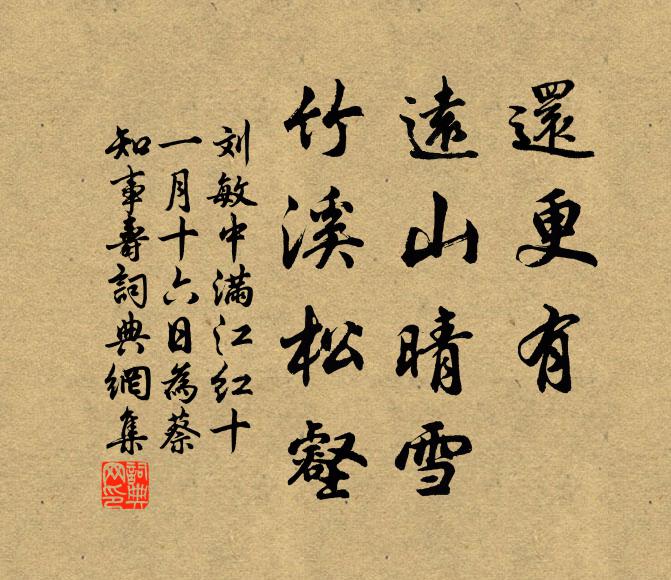 還更有
遠山晴雪
竹溪松壑
刘敏中滿江红十
一月十六日為蔡
知事壽詞典網集
詞典
网印